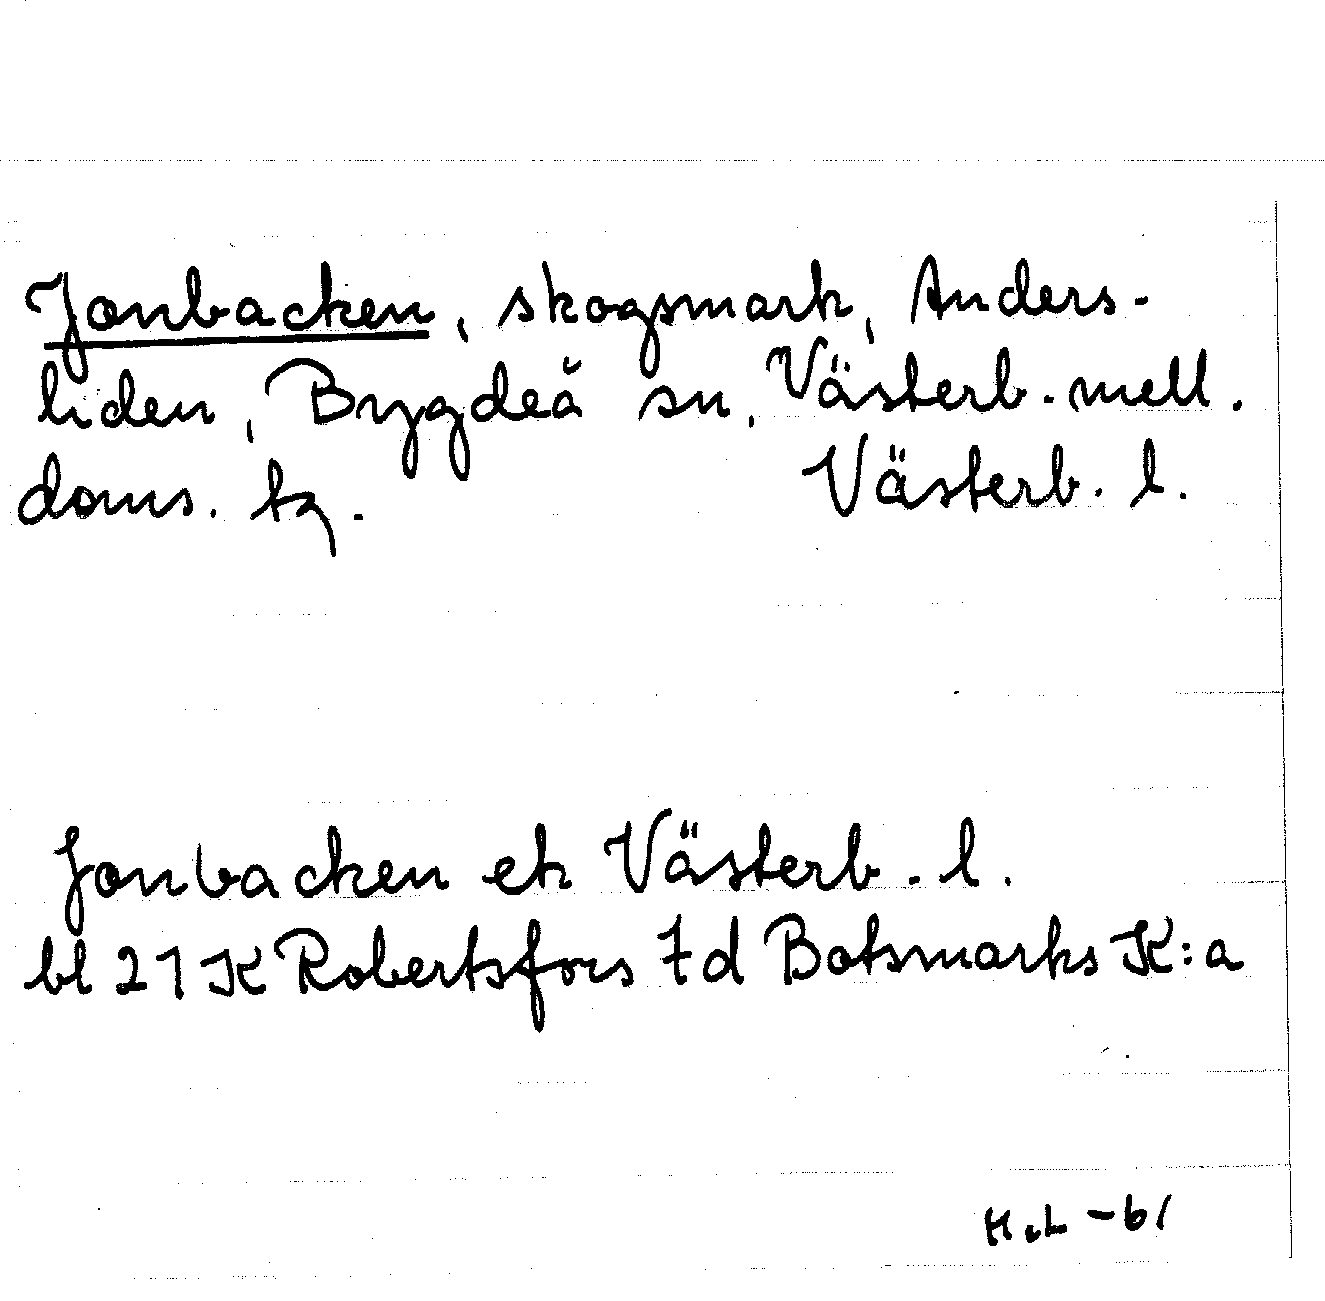 Jonbacken, skogsmark, Anders-
liden, Bygdeå sn, Västerb. mell.
doms. tg. Västerb. l.
Jonbacken ek Västerb. l.
bl 21 K Robertsfors 7d Botsmarks K:a
H.L -61